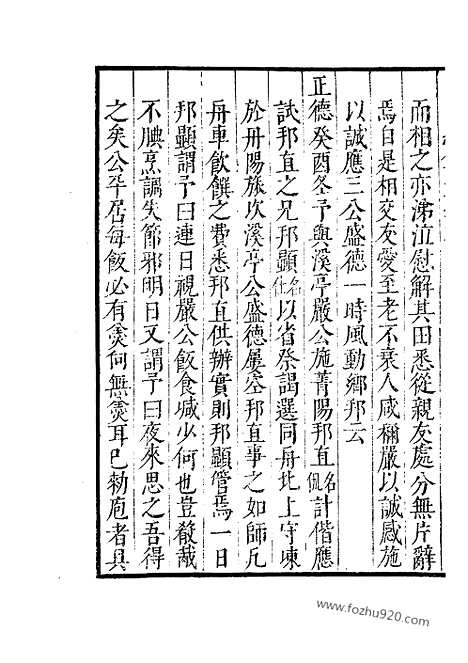 而相之亦涕泣慰解其田悉從親友處分無片辭
焉自是相交友愛至老不衰人咸稱嚴以誠感施
以誠應三公盛德一時風動鄉邦云
正德癸酉冬予與溪亭嚴公施菁陽邦直名侃計偕應
試邦直之兄邦顯名以省祭謁選同舟北上守凍
於丹陽旅次溪亭公盛德屢空邦直事之如師凡
舟車飲饌之費悉邦直供辦實則邦顯管焉一日
邦顯謂予曰連日視嚴公飯食减少何也豈殽胾
不腆烹調失節邪明日又謂予曰夜來思之吾得
之矣公平居每飯必有羹何無羹耳已勑庖者具
www.fozhu920.com